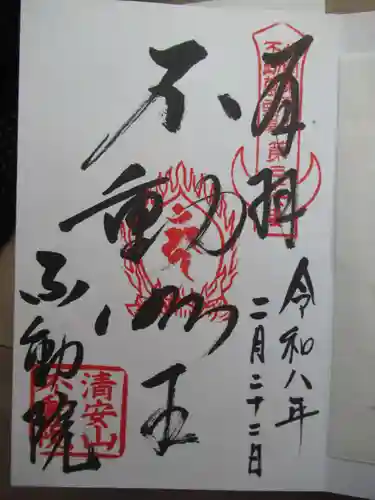 奉拝
令和八年
二月二十二日
不動明王
不動院
清安山